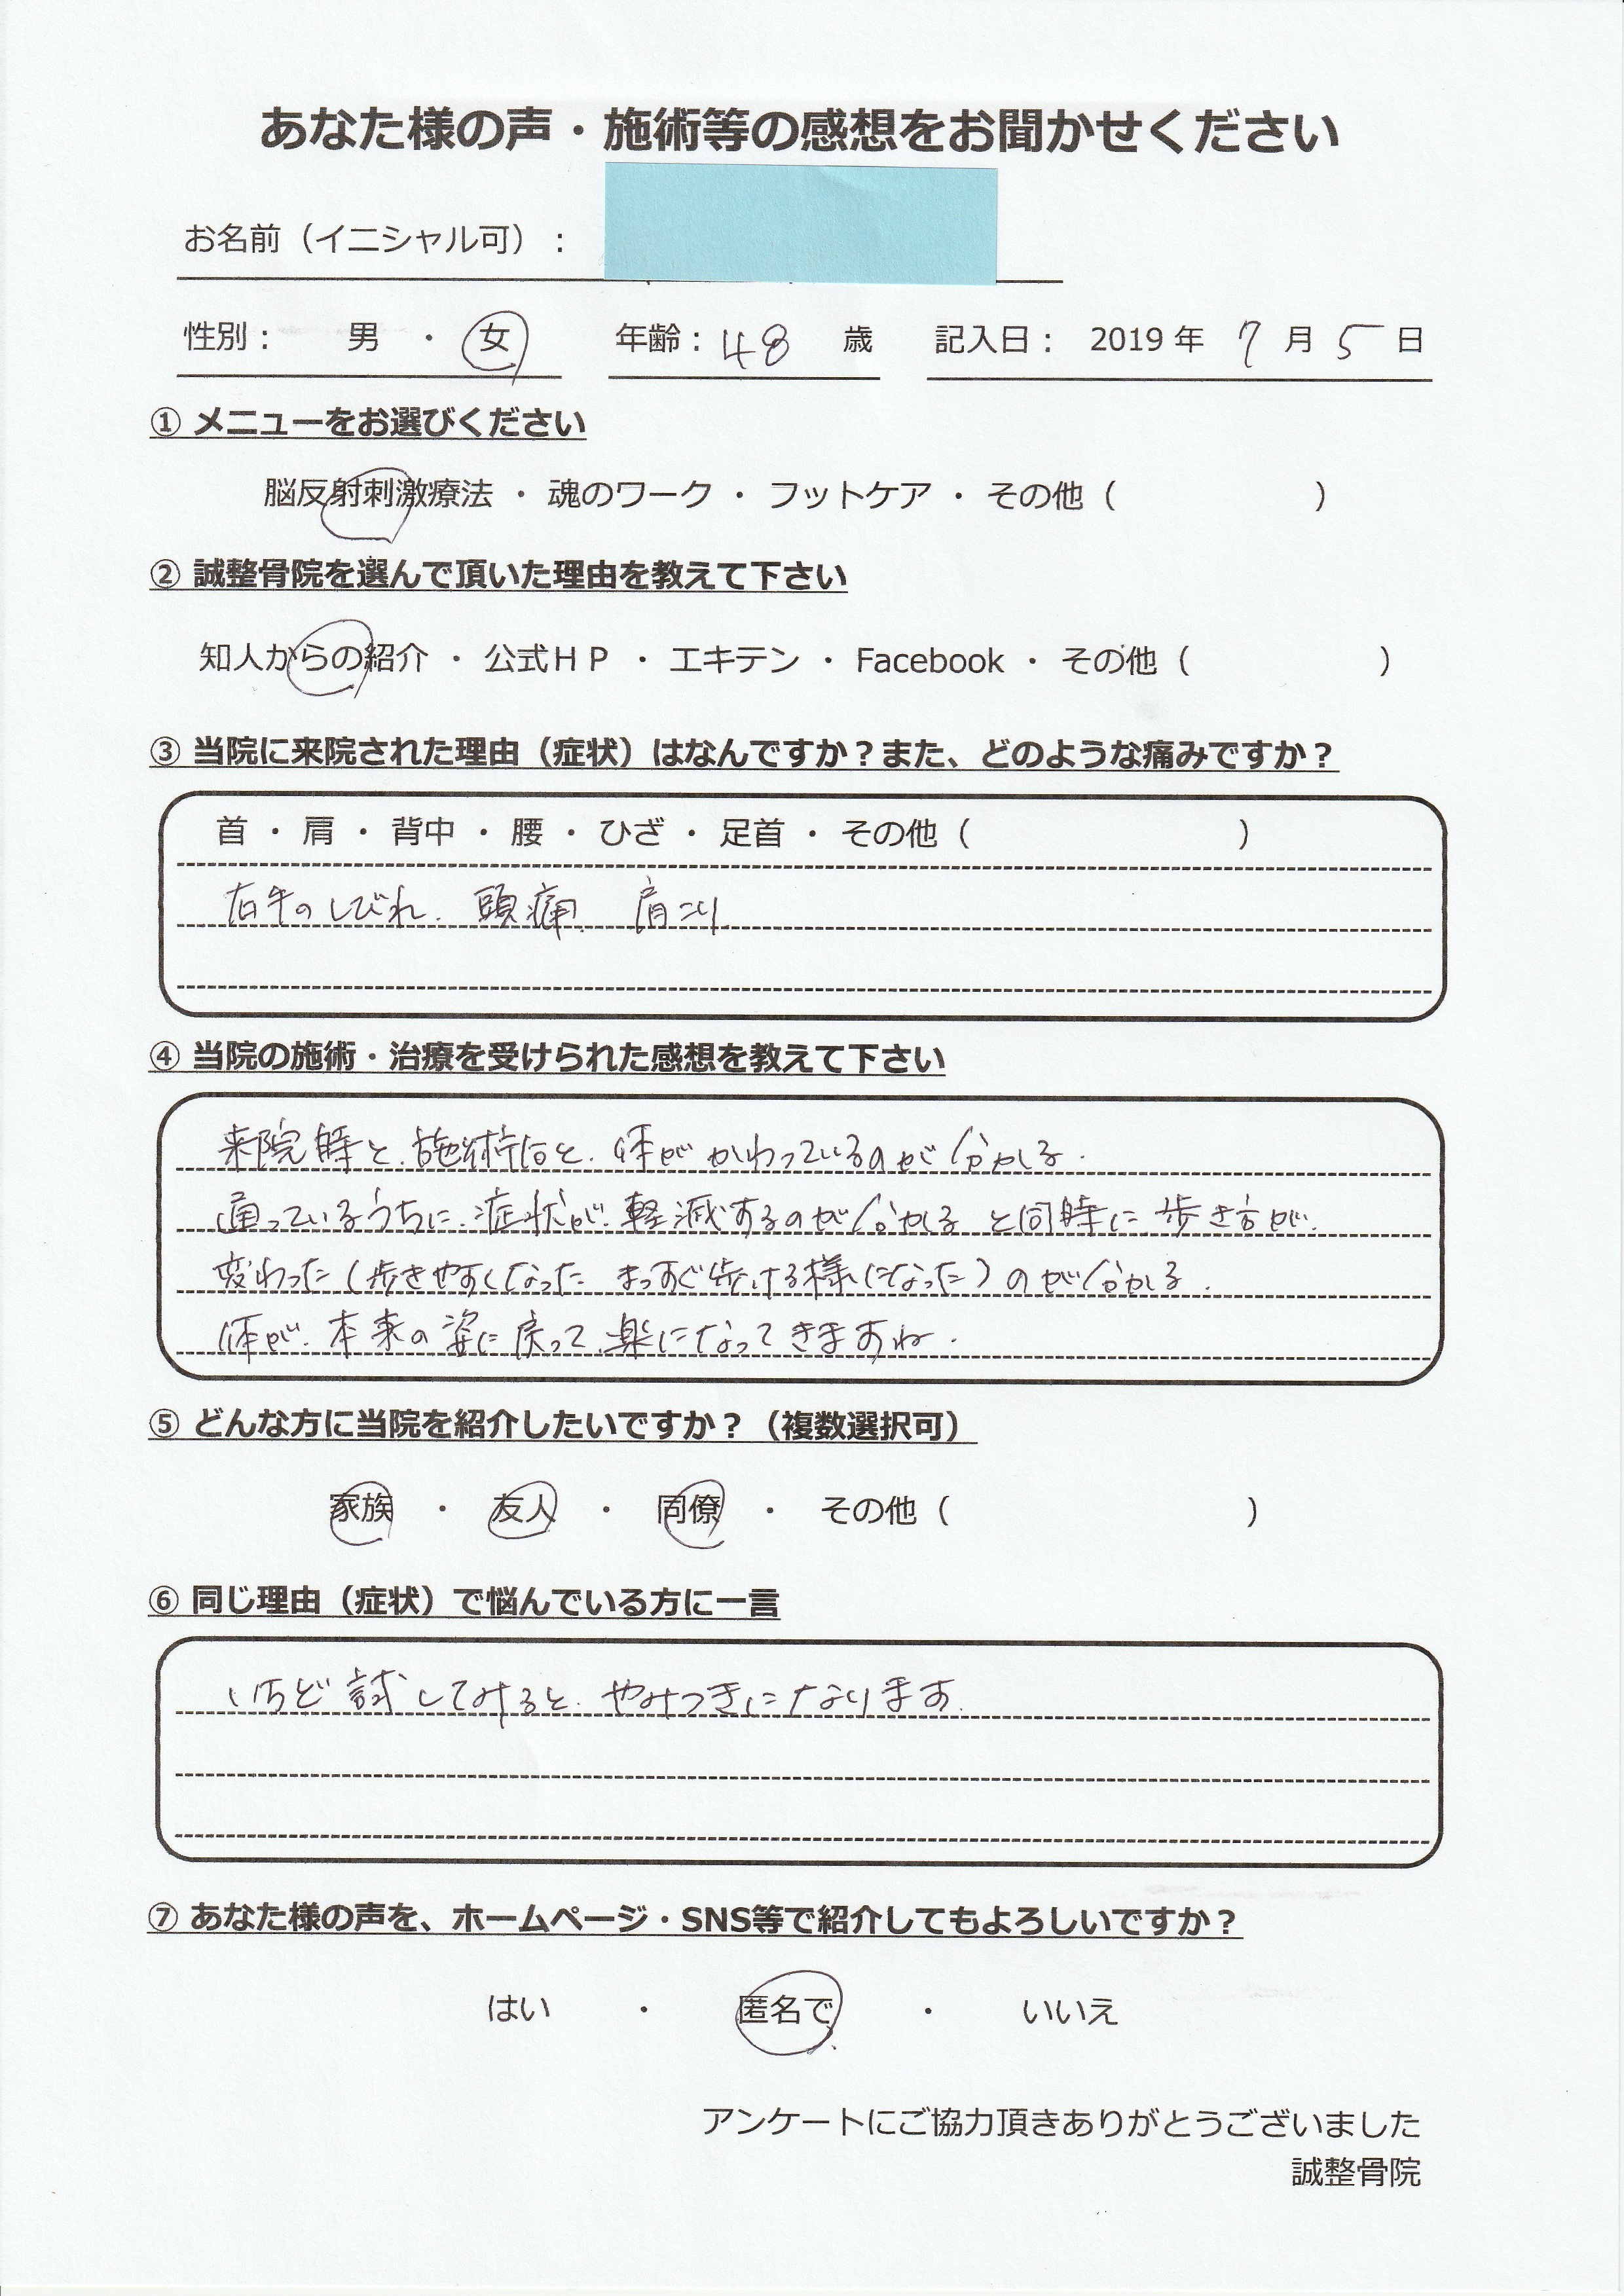 あなた様の声・施術等の感想をお聞かせください
お名前（イニシャル可）：
性別： 男 ・ 女 年齢：48 歳 記入日： 2019 年 7 月 5 日
① メニューをお選びください
脳反射刺激療法 ・ 魂のワーク ・ フットケア ・ その他（ ）
② 誠整骨院を選んで頂いた理由を教えて下さい
知人からの紹介 ・ 公式ＨＰ ・ エキテン ・ Facebook ・ その他（ ）
③ 当院に来院された理由（症状）はなんですか？また、どのような痛みですか？
首 ・ 肩 ・ 背中 ・ 腰 ・ ひざ ・ 足首 ・ その他（ ）
右手のしびれ、頭痛、肩こり
④ 当院の施術・治療を受けられた感想を教えて下さい
来院時と、施術後と、体がかわっているのが分かる。
通っているうちに、症状が、軽減するのが分かると同時に歩き方が、
変わった（歩きやすくなった まっすぐ歩ける様になった）のが分かる。
体が、本来の姿に戻って、楽になってきますね。
⑤ どんな方に当院を紹介したいですか？（複数選択可）
家族 ・ 友人 ・ 同僚 ・ その他（ ）
⑥ 同じ理由（症状）で悩んでいる方に一言
いちど試してみると、やみつきになります。
⑦ あなた様の声を、ホームページ・SNS等で紹介してもよろしいですか？
はい ・ 匿名で ・ いいえ
アンケートにご協力頂きありがとうございました
誠整骨院